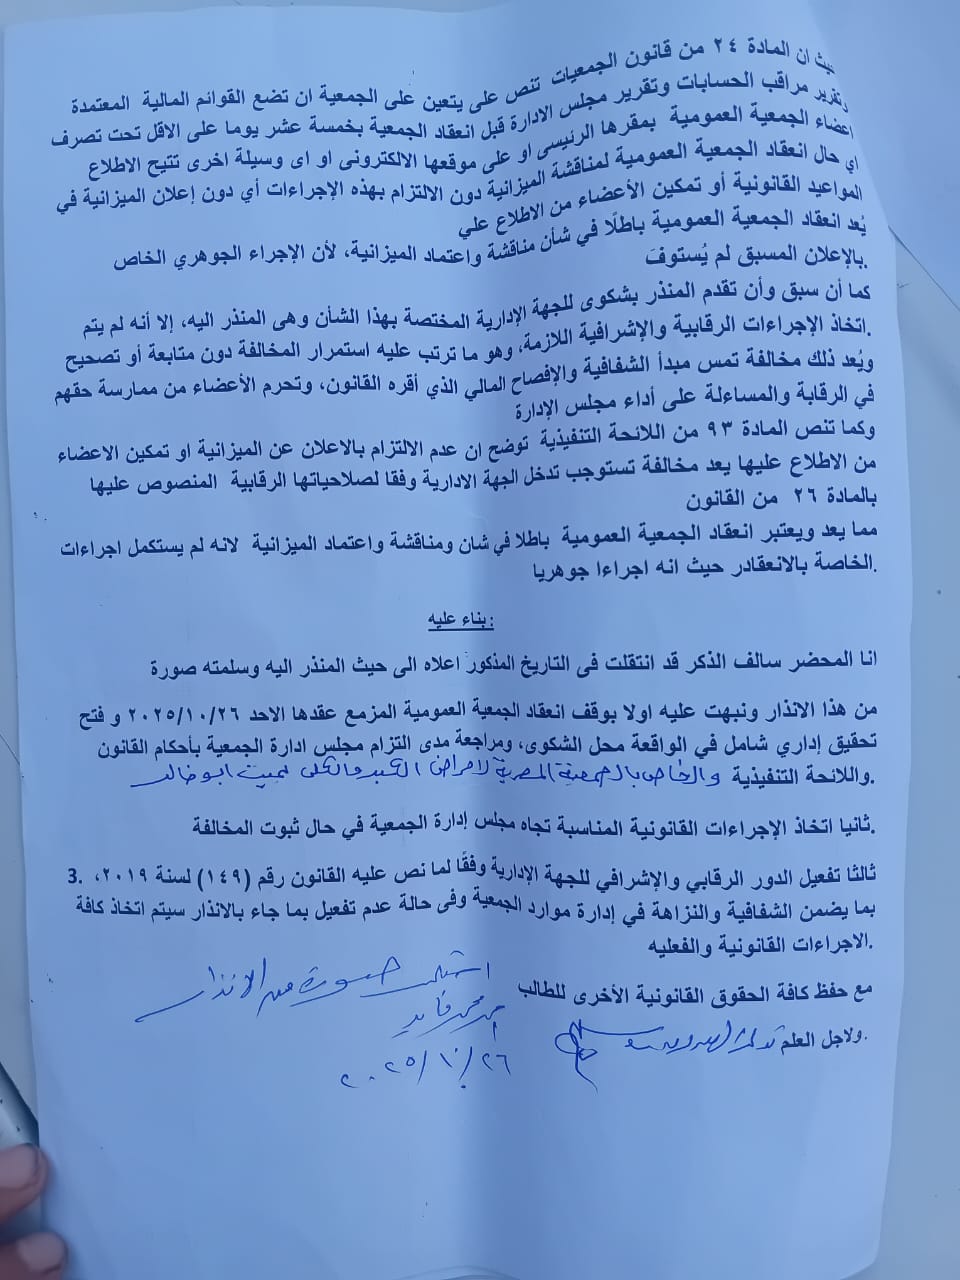 حيث ان المادة ٢٤ من قانون الجمعيات تنص على يتعين على الجمعية ان تضع القوائم المالية المعتمدة
وتقرير مراقب الحسابات وتقرير مجلس الادارة قبل انعقاد الجمعية بخمسة عشر يوما على الاقل تحت تصرف
اعضاء الجمعية العمومية بمقرها الرئيسى او على موقعها الالكترونى او اى وسيلة اخرى تتيح الاطلاع
اي حال انعقاد الجمعية العمومية لمناقشة الميزانية دون الالتزام بهذه الإجراءات أي دون إعلان الميزانية في
المواعيد القانونية أو تمكين الأعضاء من الاطلاع علي
يُعد انعقاد الجمعية العمومية باطلًا في شأن مناقشة واعتماد الميزانية، لأن الإجراء الجوهري الخاص
بالإعلان المسبق لم يُستوفَ.
كما أن سبق وأن تقدم المنذر بشكوى للجهة الإدارية المختصة بهذا الشأن وهى المنذر اليه، إلا أنه لم يتم
اتخاذ الإجراءات الرقابية والإشرافية اللازمة، وهو ما ترتب عليه استمرار المخالفة دون متابعة أو تصحيح.
ويُعد ذلك مخالفة تمس مبدأ الشفافية والإفصاح المالي الذي أقره القانون، وتحرم الأعضاء من ممارسة حقهم
في الرقابة والمساءلة على أداء مجلس الإدارة
وكما تنص المادة ٩٣ من اللائحة التنفيذية توضح ان عدم الالتزام بالاعلان عن الميزانية او تمكين الاعضاء
من الاطلاع عليها يعد مخالفة تستوجب تدخل الجهة الادارية وفقا لصلاحياتها الرقابية المنصوص عليها
بالمادة ٢٦ من القانون
مما يعد ويعتبر انعقاد الجمعية العمومية باطلا في شان ومناقشة واعتماد الميزانية لانه لم يستكمل اجراءات
الخاصة بالانعقادر حيث انه اجراءا جوهريا.
بناء عليه:
انا المحضر سالف الذكر قد انتقلت فى التاريخ المذكور اعلاه الى حيث المنذر اليه وسلمته صورة
من هذا الانذار ونبهت عليه اولا بوقف انعقاد الجمعية العمومية المزمع عقدها الاحد ٢٠٢٥/١٠/٢٦ و فتح
تحقيق إداري شامل في الواقعة محل الشكوى، ومراجعة مدى التزام مجلس ادارة الجمعية بأحكام القانون
واللائحة التنفيذية. والخاص بالجمعية المصرية لامراض الكبد والكلى بميت ابو خالد
ثانيا اتخاذ الإجراءات القانونية المناسبة تجاه مجلس إدارة الجمعية في حال ثبوت المخالفة.
3. ثالثا تفعيل الدور الرقابي والإشرافي للجهة الإدارية وفقًا لما نص عليه القانون رقم (١٤٩) لسنة ٢٠١٩،
بما يضمن الشفافية والنزاهة في إدارة موارد الجمعية وفى حالة عدم تفعيل بما جاء بالانذار سيتم اتخاذ كافة
الاجراءات القانونية والفعليه.
استلمت صورة من الانذار
مع حفظ كافة الحقوق القانونية الأخرى للطالب
ولاجل العلم.
٢٠٢٥/١٠/٢٦